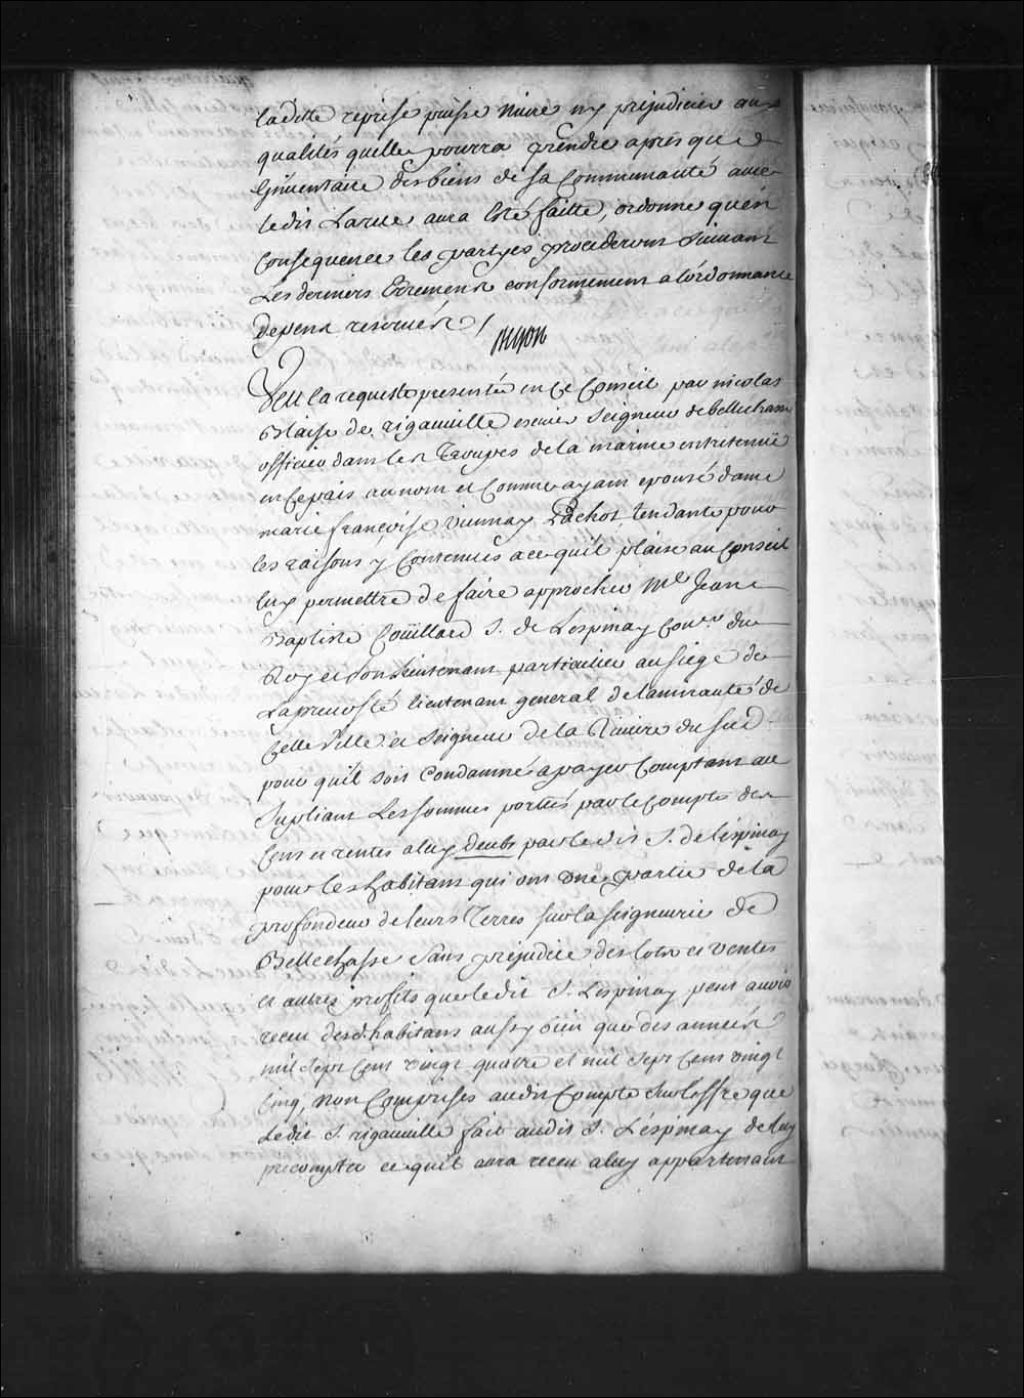 laditte reprise puisse nuire ny prejudicier aux
qualités quelle pourra prendre apres que
Linventaire des biens de sa Communauté avec
ledit Larue aura esté faitte, ordonne quen
Consequence les partyes procederont suivant
Les derniers Erremens conformement a lordonnance
depens reservés /
Veu la requeste presentée en ce Conseil par nicolas
Blaise de rigauville escuier seigneur de bellechasse
officier dans les Troupes de la marine entretenüe
en ce pais au nom et Comme ayant epousé dame
marie françoise viennay Pachot, tendante pour
les raisons y Contenues a ce quil plaise au Conseil
luy permettre de faire approcher Me Jean
Baptiste Coüillard S. de Lespinay Coner du
Roy et son Lieutenant particulier au siege de
La prevosté lieutenant general de lamirauté de
Cette ville et Seigneur de la Riviere du sud
pour quil soit Condamné a payer Comptant au
Supliant Les sommes portées par le Compte des
Cens et rentes a luy deubs par ledit S. de lespinay
pour les habitans qui ont une partie de la
profondeur de leurs Terres sur la seigneurie de
Bellechasse Sans prejudice des lots et ventes
et autres profits que ledit S. Lespinay peut avoir
receu desd. habitans aussy bien que des années
mil sept Cent vingt quatre et mil sept Cent vingt
Cinq, non Comprises audit Compte sur loffre que
Ledit S. rigauville fait audit S. Lespinay de luy
precompter ce quil aura receu a luy appartenant